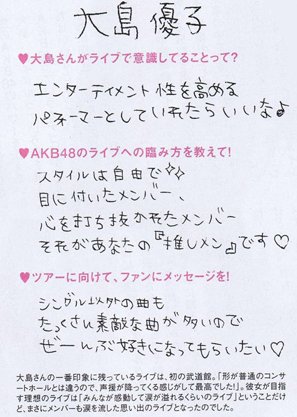 大島優子
♥大島さんがライブで意識してることって?
エンターテイメント性を高める
パフォーマーとしていれたらいいな♪
♥AKB48のライブへの臨み方を教えて!
スタイルは自由で✧✧
目に付いたメンバー、
心を打ち抜かれたメンバー
それがあなたの『推しメン』です♡
♥ツアーに向けて、ファンにメッセージを!
シングル以外の曲も
たっくさん素敵な曲があるので
ぜーんぶ好きになってもらいたい♡
大島さんの一番印象に残っているライブは、初の武道館。「形が普通のコンサ
ートホールとは違うので、声援が降ってくる感じがして最高でした!」。彼女が目指
す理想のライブは「みんなが感動して涙が溢れるくらいのライブ」ということだけ
ど、まさにメンバーも涙を流した思い出のライブとなったのでした。